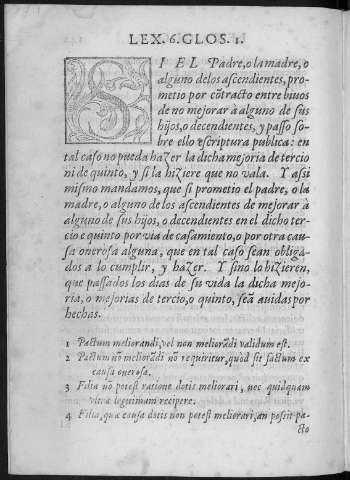 LEX. 6. GLOS. 1.
SI EL Padre, o la madre, o
alguno delos ascendientes, pro-
metio por cõtracto entre biuos
de no mejorar à alguno de sus
hijos, o decendientes, y passo so-
bre ello escriptura publica: en
tal caso no pueda hazer la dicha mejoria de tercio
ni de quinto, y si la hiziere que no vala. Y assi
mismo mandamos, que si prometio el padre, o la
madre, o alguno de los ascendientes de mejorar à
alguno de sus hijos, o decendientes en el dicho ter-
cio e quinto por via de casamiento, o por otra cau-
sa onerosa alguna, que en tal caso sean obliga-
dos a lo cumplir, y hazer. Y sino lo hizieren,
que passados los dias de su vida la dicha mejo-
ria, o mejorias de tercio, o quinto, seã auidas por
hechas.
1 Pactum meliorandi, vel non meliorãdi validum est.
2 Pactum nõ meliorãdi nõ requiritur, quòd sit factum ex
causa onerosa.
3 Filia nõ potest ratione dotis meliorari, nec quidquam
vltra legitimam recipere.
4 Filia, quæ causa dotis non potest meliorari, an possit pa-
cto